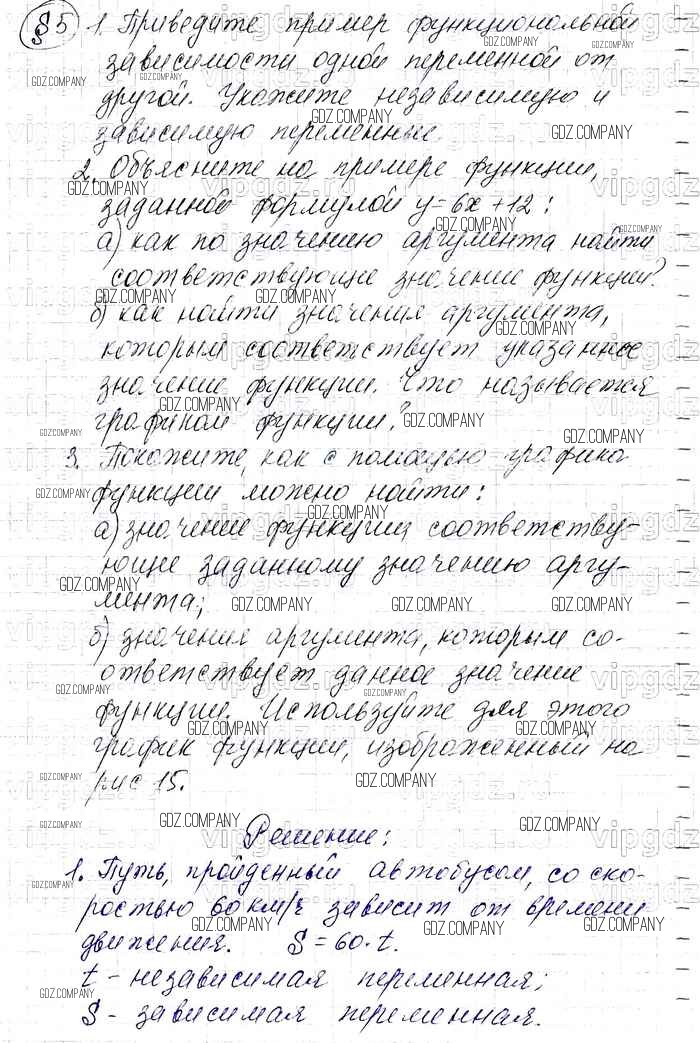 §5 1. Приведите пример функциональной
зависимости одной переменной от
другой. Укажите независимую и
зависимую переменные.
2. Объясните на примере функции,
заданной формулой y=6x+12:
а) как по значению аргумента найти
соответствующие значение функции?
б) как найти значения аргумента,
которым соответствует указанное
значение функции. Что называется
графиком функции?
3. Покажите, как с помощью графика
функции можно найти:
а) значение функции соответству-
ющие заданному значению аргу-
мента;
б) значения аргумента, которым со-
ответствует данное значение
функции. Используйте для этого
график функции, изображенный на
рис 15.
Решение:
1. Путь, пройденный автобусом, со ско-
ростью 60 км/ч зависит от времени
движения. S=60·t.
t - независимая переменная;
S - зависимая переменная.
GDZ.COMPANY
vipgdz.ru